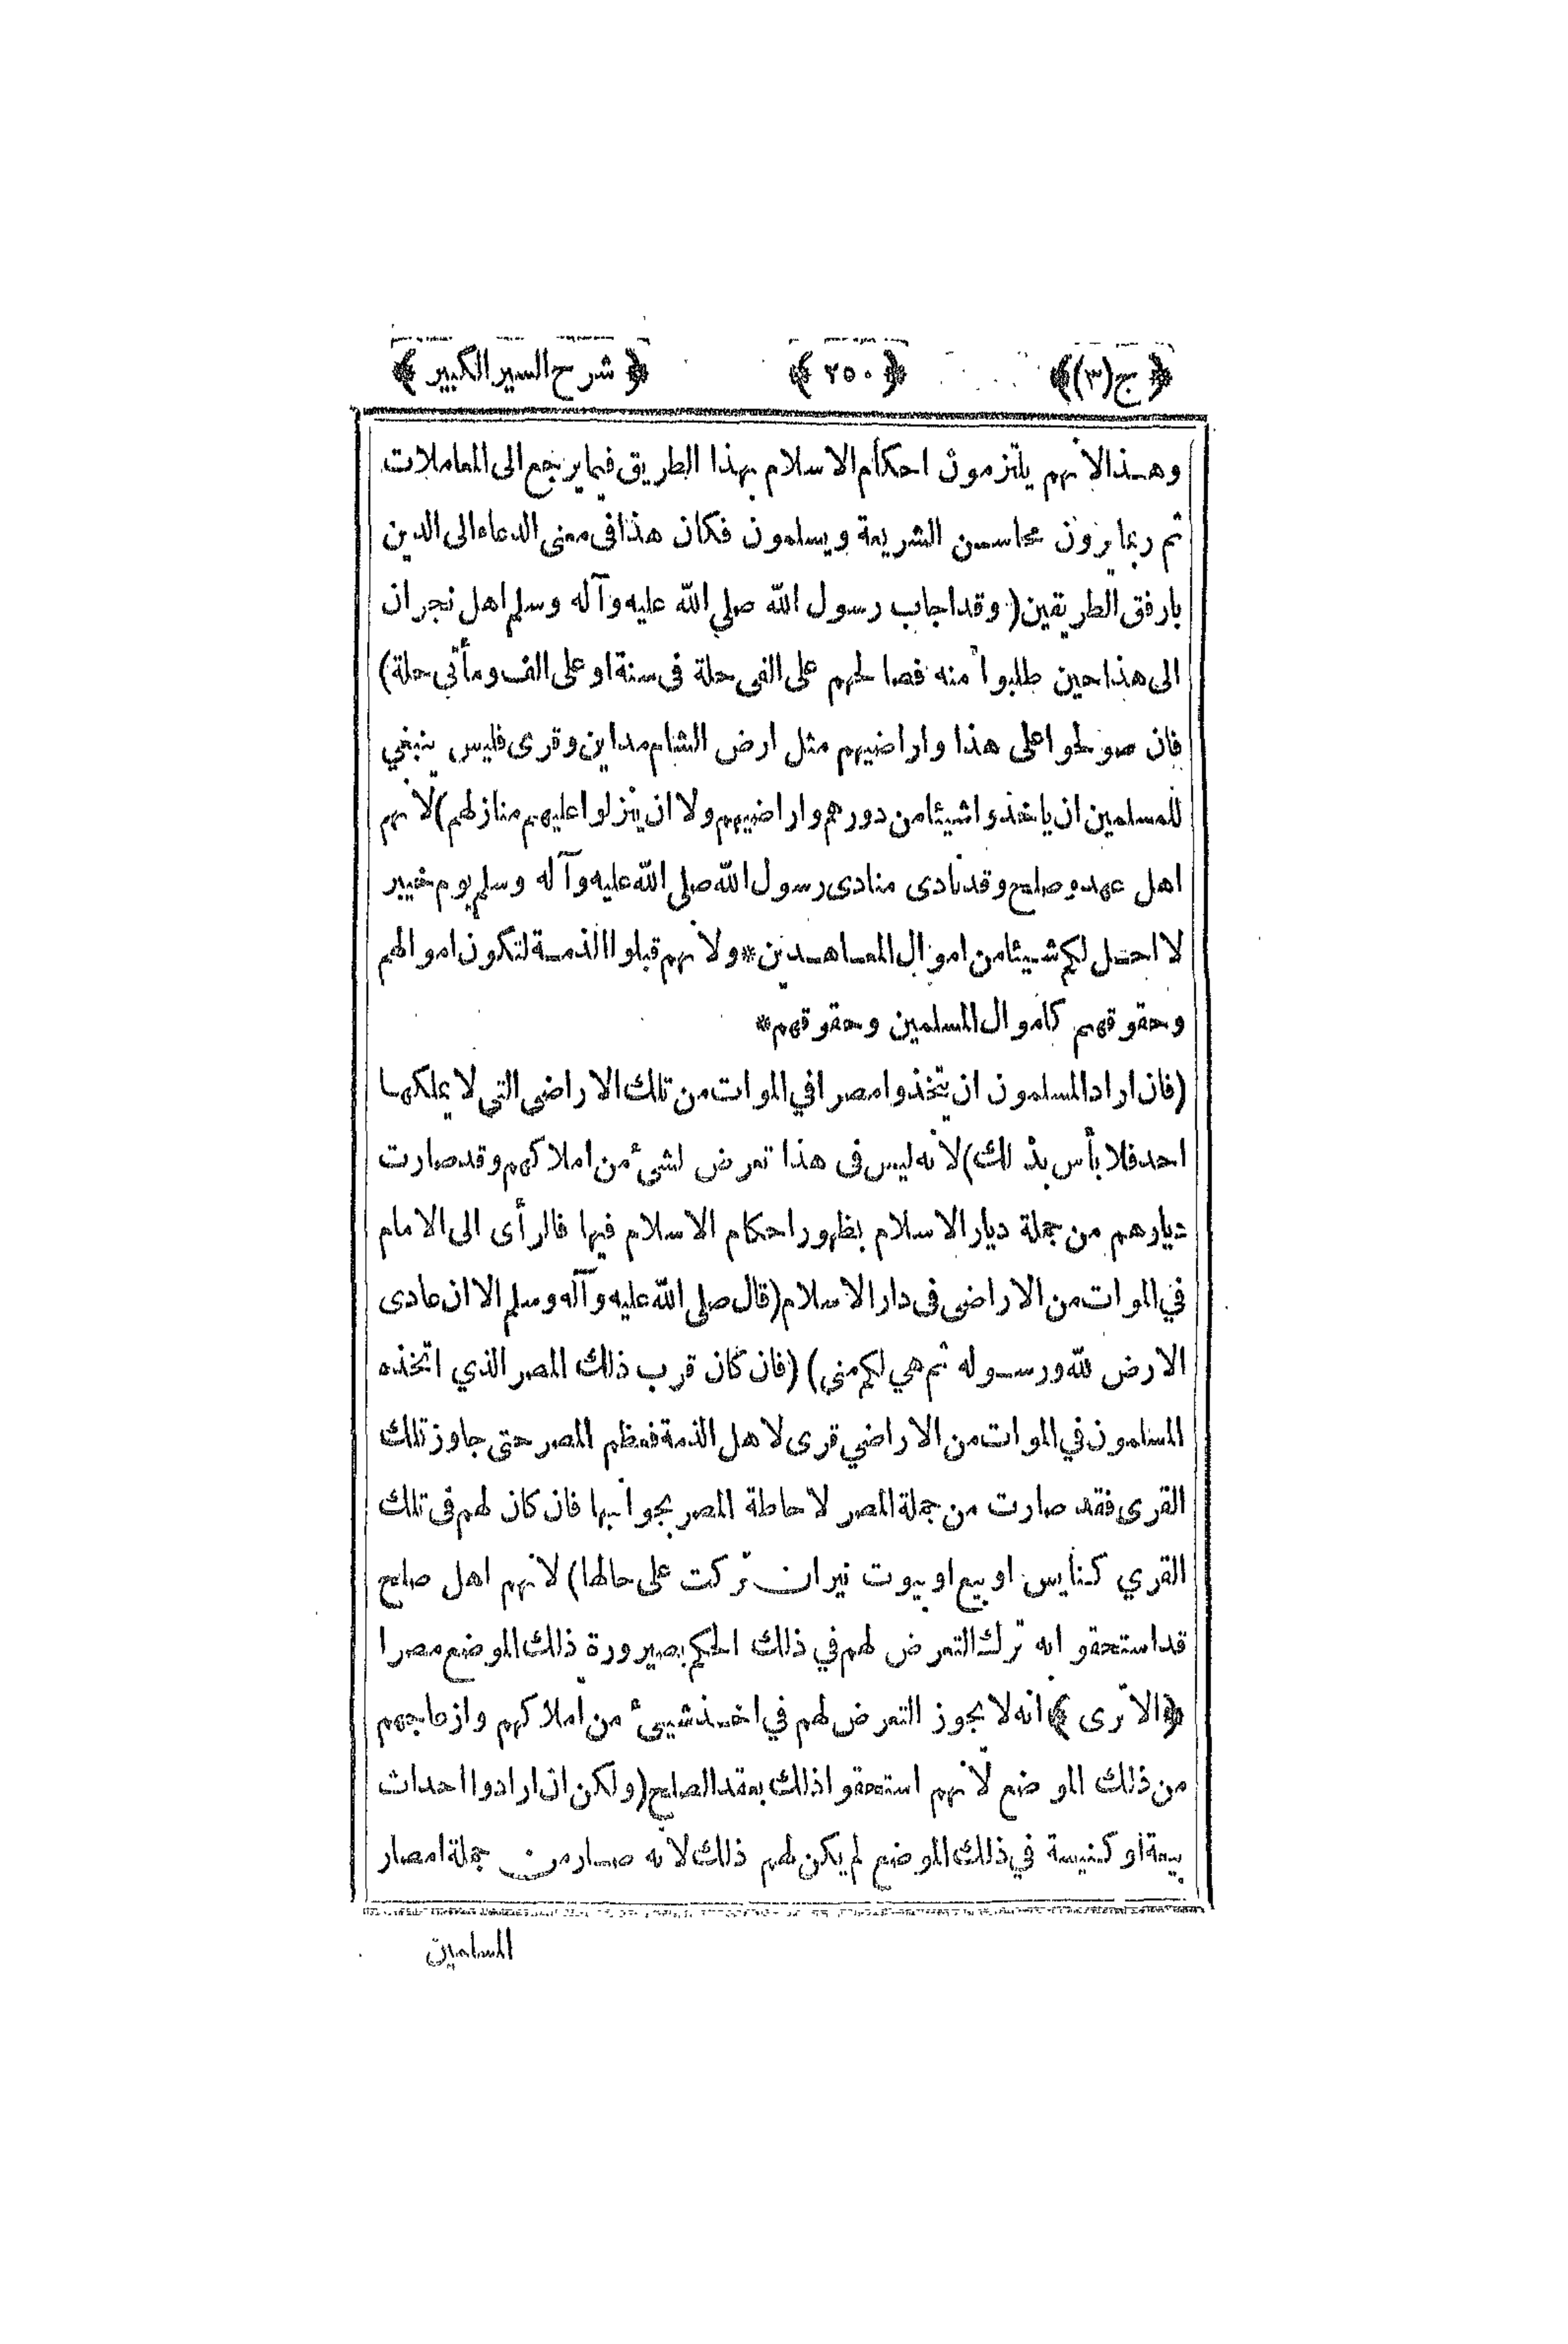 ﴿ ج(٣) ﴾ ﴿ ٢٥٠ ﴾ ﴿ شرح السير الكبير ﴾
وهذا لانهم يلتزمون احكام الاسلام بهذا الطريق فيما يرجع الى المعاملات
ثم ربما يرون محاسن الشريعة ويسلمون فكان هذا فى معنى الدعاء الى الدين
بارفق الطريقين (وقد اجاب رسول الله صلى الله عليه وآله وسلم اهل نجران
الى هذا حين طلبوا منه فصالحهم على الفى حلة فى سنة او على الف ومأتى حلة)
فان صولحوا على هذا واراضيهم مثل ارض الشام مداين وقرى فليس ينبغي
للمسلمين ان ياخذوا شيئا من دورهم واراضيهم ولا ان ينزلوا عليهم منازلهم) لانهم
اهل عهد وصلح وقد نادى منادى رسول الله صلى الله عليه وآله وسلم يوم خيبر
لا احل لكم شيئا من اموال المعاهدين * ولانهم قبلوا الذمة لتكون اموالهم
وحقوقهم كاموال المسلمين وحقوقهم *
(فان اراد المسلمون ان يتخذوا مصرا في الموات من تلك الاراضى التى لا يملكها
احد فلا بأس بذلك) لانه ليس فى هذا تعرض لشئ من املاكهم وقد صارت
ديارهم من جملة ديار الاسلام بظهور احكام الاسلام فيها فالرأى الى الامام
في الموات من الاراضى فى دار الاسلام (قال صلى الله عليه وآله وسلم الا ان عادى
الارض لله ورسوله ثم هي لكم منى) (فان كان قرب ذلك المصر الذي اتخذه
المسلمون في الموات من الاراضي قرى لاهل الذمة فعظم المصر حتى جاوز تلك
القرى فقد صارت من جملة المصر لاحاطة المصر بجوانبها فان كان لهم فى تلك
القري كنايس او بيع او بيوت نيران تركت على حالها) لانهم اهل صلح
قد استحقوا به ترك التعرض لهم في ذلك الحكم بصيرورة ذلك الموضع مصرا
﴿ الا ترى ﴾ انه لا يجوز التعرض لهم في اخذ شيئ من املاكهم وازعاجهم
من ذلك الموضع لانهم استحقوا ذلك بعقد الصلح (ولكن ان ارادوا احداث
بيعة او كنيسة في ذلك الموضع لم يكن لهم ذلك لانه صار من جملة امصار
المسلمين